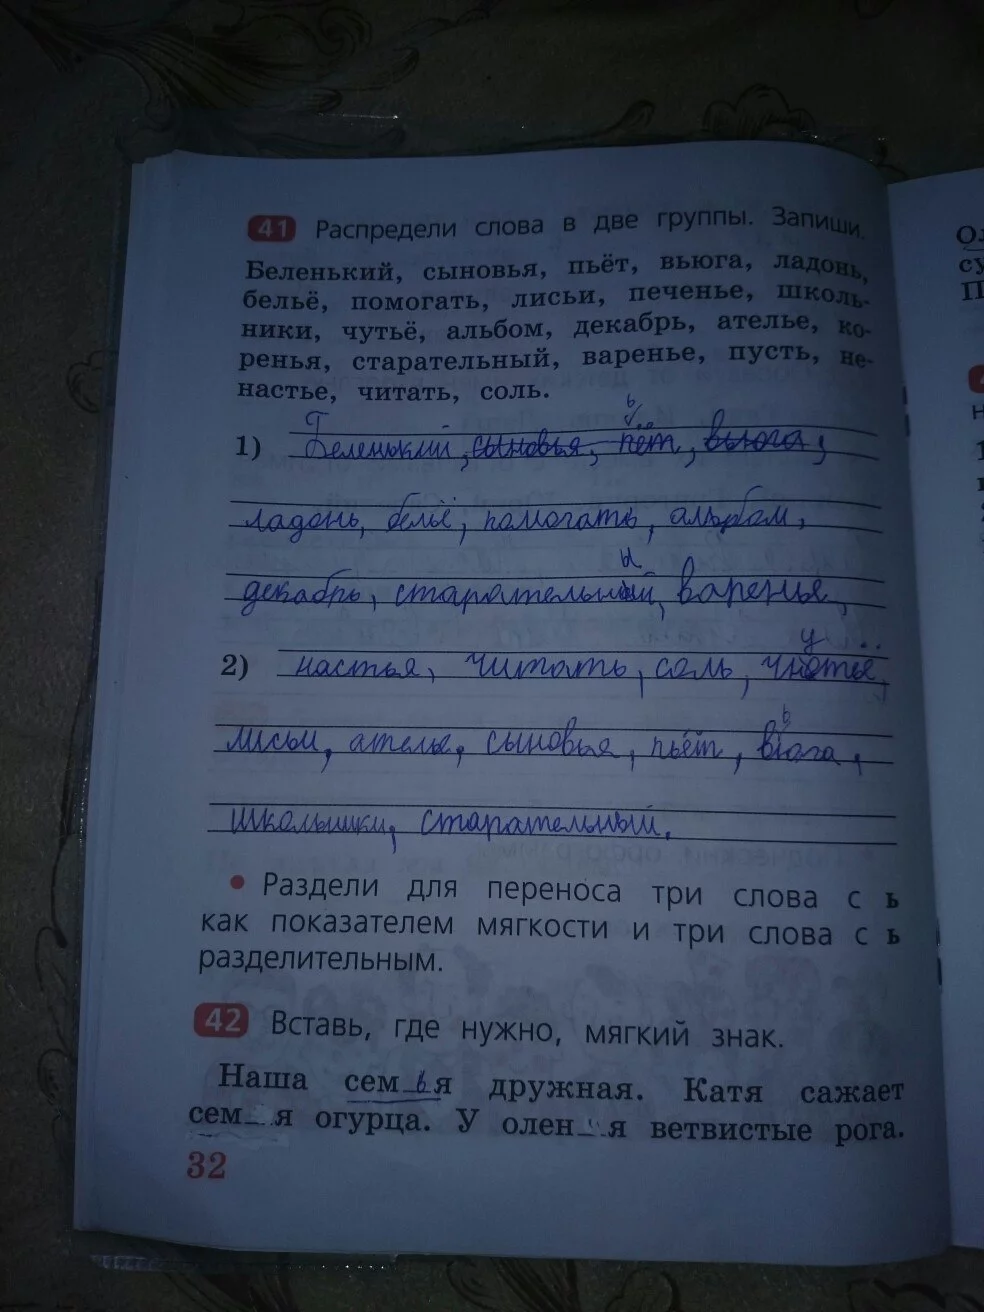 41 Распредели слова в две группы. Запиши.
Беленький, сыновья, пьёт, вьюга, ладонь,
бельё, помогать, лисьи, печенье, школь-
ники, чутьё, альбом, декабрь, ателье, ко-
ренья, старательный, варенье, пусть, не-
настье, читать, соль.
1) Беленький, сыновья, пёт, вьюга,
ладонь, бельё, помогать, альбом,
декабрь, старательный, варенье,
2) настья, читать, соль,
лисьи, ателье, сыновья, пьёт, вьюга,
школьники, старательный.
• Раздели для переноса три слова с ь
как показателем мягкости и три слова с ь
разделительным.
42 Вставь, где нужно, мягкий знак.
Наша сем ь я дружная. Катя сажает
сем_я огурца. У олен_я ветвистые рога.
32